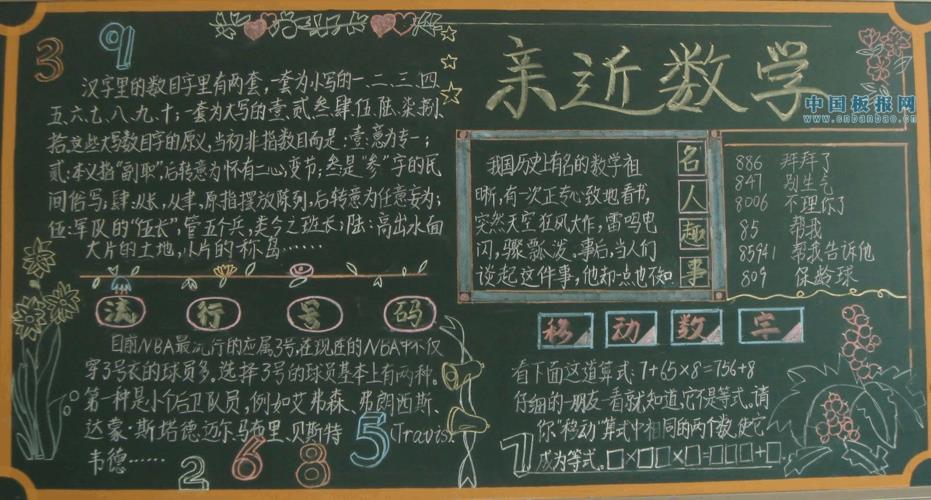 3 9
汉字里的数目字里有两套,一套为小写的一.二.三.四.
五.六.七.八.九.十;一套为大写的壹.贰.叁.肆.伍.陆.柒.捌.
拾.这些大写数目字的原义,当初非指数目而是:壹:意为专一;
贰:本义指“副职”,后转意为怀有二心,变节;叁是“参”字的民
间俗写;肆:从长,从聿.原指摆放陈列.后转意为任意妄为;
伍:军队的“伍长”,管五个兵,类今之班长;陆:高出水面
大片的土地,从片的称岛……
流行号码
目前NBA最流行的应属3号,在现连的NBA中不仅
穿3号衣的球员多。选择3号的球员基本上有两种。
第一种是小个后卫队员,例如艾弗森、弗朗西斯、
达蒙·斯塔德.迈尔.马布里、贝斯特 (Travis.
韦德……
2 6 8 5
亲近数学
中国板报网
www.cnbanbao.cn
名人趣事
我国历史上有名的数学祖
晰,有一次正专心致地看书,
突然天空狂风大作,雷鸣电
闪,骤瓢泼.事后,当人们
谈起这件事,他却一点也不知
886 拜拜了
847 别生气
8006 不理你了
85 帮我
85941 帮我告诉他
809 保龄球
移动数字
看下面这道算式:7+65×8=756+8
仔细的一朋友一看就知道,它不是等式。请
你“移动”算式中相同的两个数,使它
成为等式。□×□□×□=□□□+□.
7